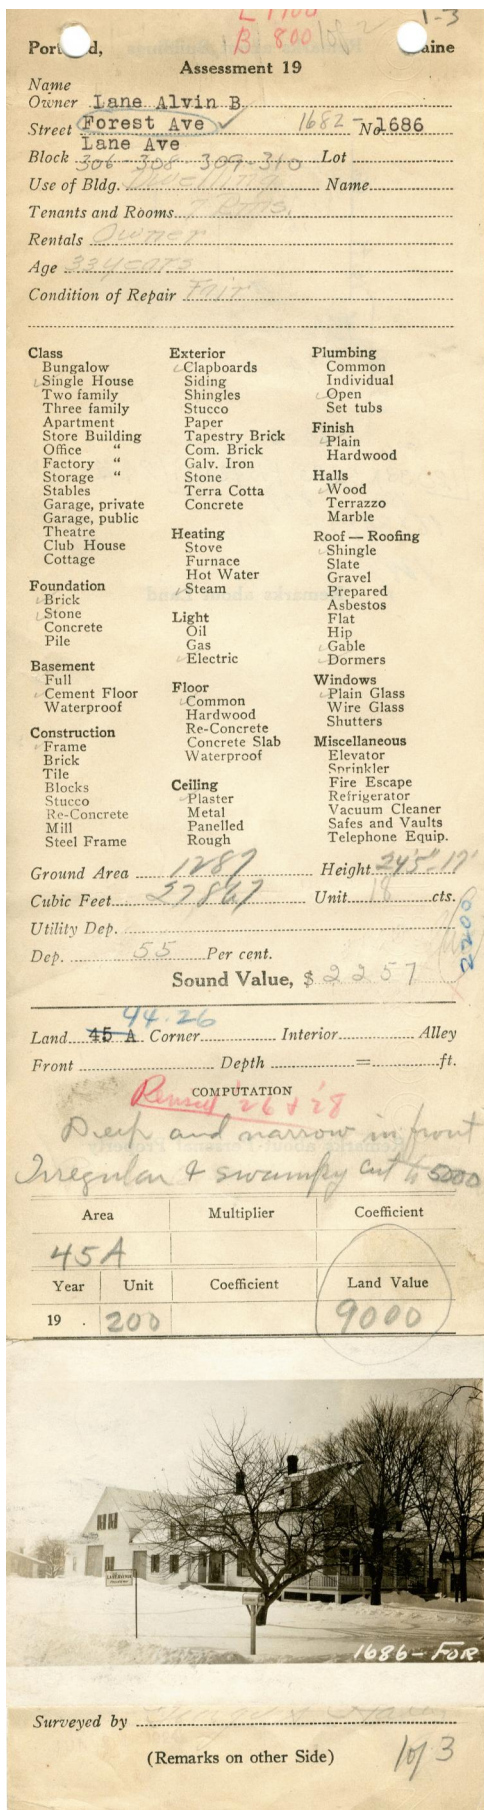 L 1700
B 800 1 of 2
1-3
Portland, Maine
Assessment 19
Name
Owner Lane Alvin B
Street Forest Ave 1682- No 1686
Lane Ave
Block 306-308-309-310 Lot
Use of Bldg. Dwelling Name
Tenants and Rooms 7 Rms.
Rentals Owner
Age 33 years
Condition of Repair Fair
Class
Bungalow
Single House
Two family
Three family
Apartment
Store Building
Office "
Factory "
Storage "
Stables
Garage, private
Garage, public
Theatre
Club House
Cottage
Foundation
Brick
Stone
Concrete
Pile
Basement
Full
Cement Floor
Waterproof
Construction
Frame
Brick
Tile
Blocks
Stucco
Re-Concrete
Mill
Steel Frame
Exterior
Clapboards
Siding
Shingles
Stucco
Paper
Tapestry Brick
Com. Brick
Galv. Iron
Stone
Terra Cotta
Concrete
Heating
Stove
Furnace
Hot Water
Steam
Light
Oil
Gas
Electric
Floor
Common
Hardwood
Re-Concrete
Concrete Slab
Waterproof
Ceiling
Plaster
Metal
Panelled
Rough
Plumbing
Common
Individual
Open
Set tubs
Finish
Plain
Hardwood
Halls
Wood
Terrazzo
Marble
Roof — Roofing
Shingle
Slate
Gravel
Prepared
Asbestos
Flat
Hip
Gable
Dormers
Windows
Plain Glass
Wire Glass
Shutters
Miscellaneous
Elevator
Sprinkler
Fire Escape
Refrigerator
Vacuum Cleaner
Safes and Vaults
Telephone Equip.
Ground Area 1287 Height 24'5"-17'
Cubic Feet 27867 Unit 18 cts.
Utility Dep.
Dep. 55 Per cent.
2200
Sound Value, $ 2257
44.26
Land 45 A Corner Interior Alley
Front Depth = ft.
COMPUTATION
Revised '26 & '28
Deep and narrow in front
Irregular & swampy cut to 5000
Area Multiplier Coefficient
45A
Year Unit Coefficient Land Value
19 . 200 9000
1686- FOR
Surveyed by
(Remarks on other Side)
1 of 3